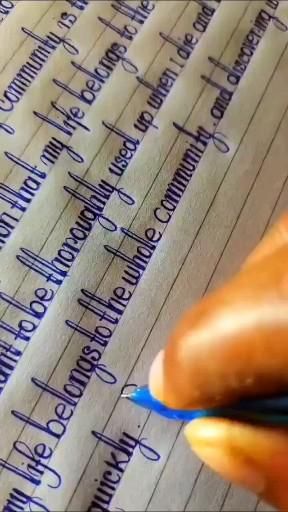 Community is
that my life belongs to the
to be thoroughly used up when i die and
my life belongs to the whole community and discovering
quickly.